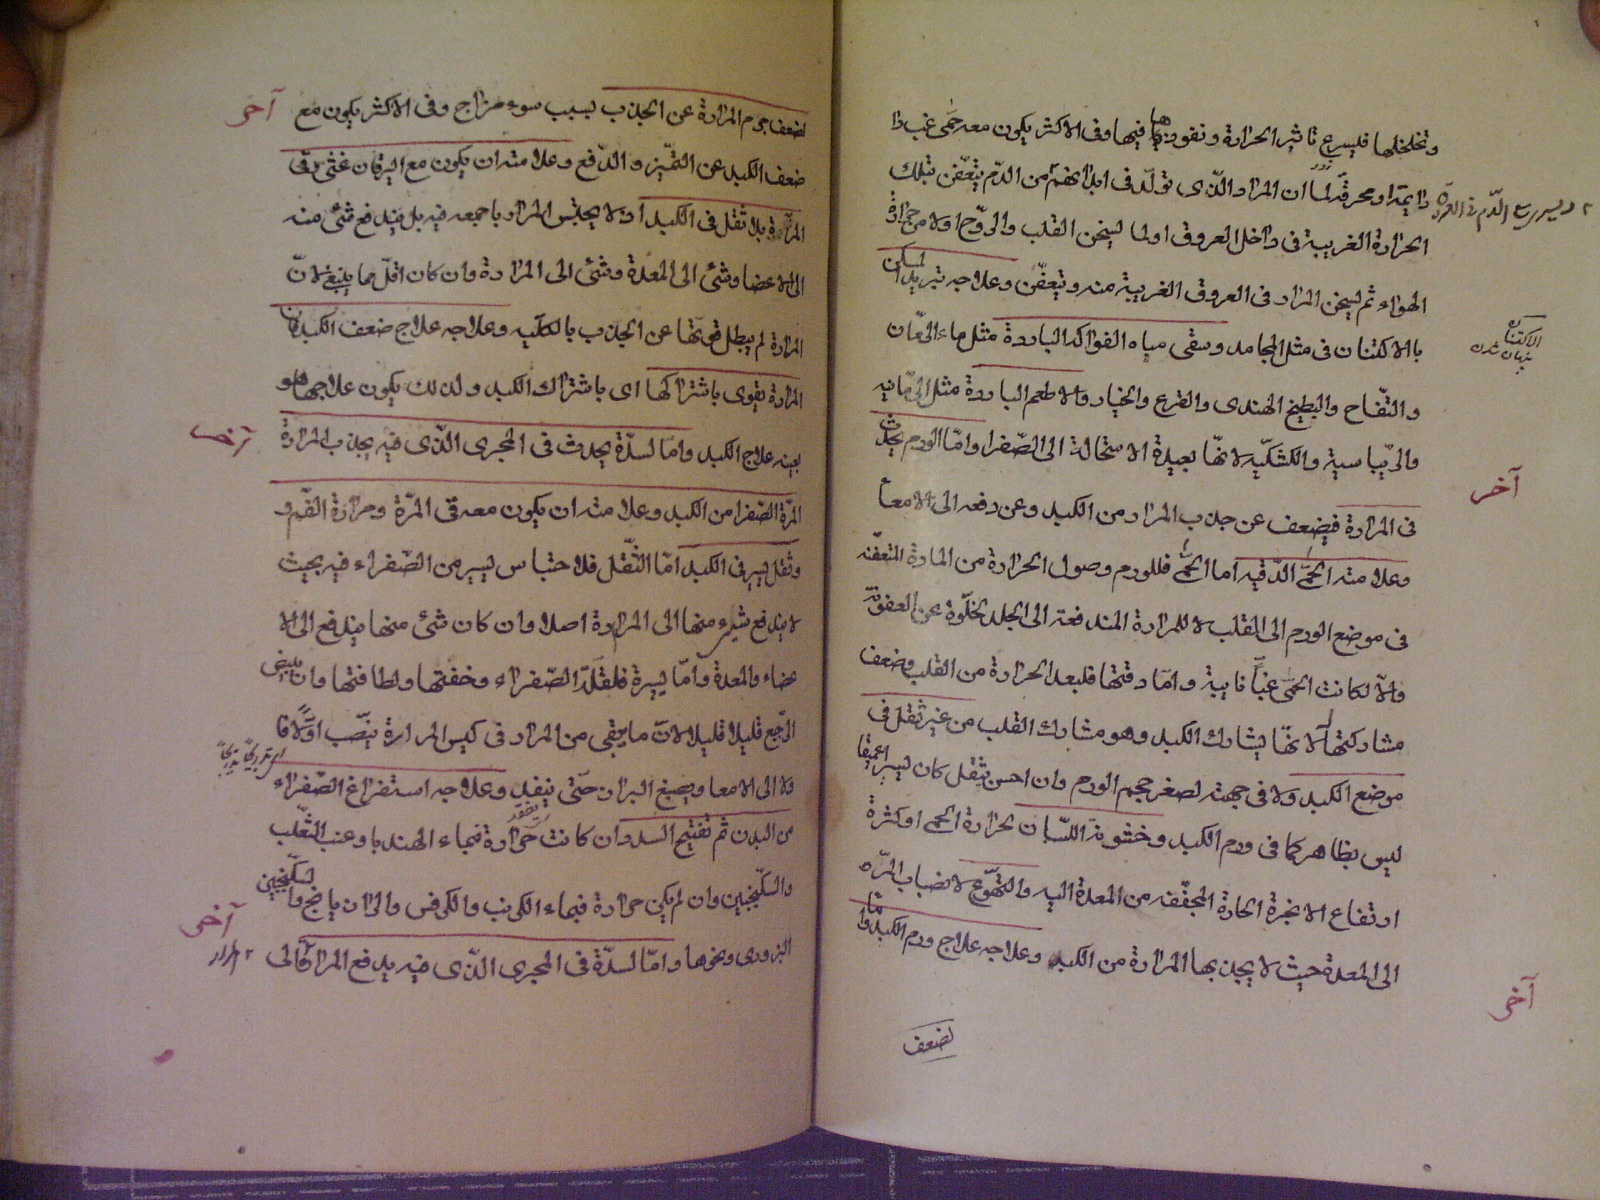 وتخلخلها فليسرع تاثير الحرارة ونفوذها فيها وفى الاكثر يكون معه حمى غب دا
دايمة او محرقة لما ان المرار الذى تولد فى ابدانهم من الدم يتعفن بتلك
الحرارة الغريبة فى داخل العروق اولما ليسخن القلب والروح اولا من حرارة
الهواء ثم ليسخن المرار فى العروق الغريبة منه ويتعفن وعلاجه تبريد المسكن
بالاكتنان فى مثل الجامد وسقى مياه الفواكه الباردة مثل ماء الرمان
والتفاح والبطيخ الهندى والقرع والخيار والاطعم الباردة مثل الرمانيه
والريباسية والكشكية لانها بعيدة الاستحالة الى الصفرا واما الورم يحدث
فى المرارة فيضعف عن جذب المرار من الكبد وعن دفعه الى الامعا
وعلامته الحمى الدقيه اما الحمى فللورم وصول الحرارة من المادة المتعفنه
فى موضع الورم الى القلب لا للمرارة المندفعة الى الجلد لخلوه عن العفونة
والا لكانت الحمى غبا نايبة واما دقتها فلبعد الحرارة من القلب وضعف
مشاركتها لانها يشارك الكبد وهو مشارك القلب من غير ثقل فى
موضع الكبد ولا فى جهته لصغر حجم الورم وان احس بثقل كان ليسير عميقا
ليس بظاهر كما فى ورم الكبد وخشونة اللسان لحرارة الحمى او كثرة
ارتفاع الابخرة الحارة المجففه من المعدة اليه والتهوع لانصباب المره
الى المعدة حيث لا يجذبها المرارة من الكبد وعلاجه علاج ورم الكبد واما
لضعف
الاكتنان
پنهان شدن
آخر
آخر
لضعف جرم المرارة عن الجذب بسبب سوء مزاج وفى الاكثر يكون مع
آخر
ضعف الكبد عن التميز والدفع وعلامته ان يكون مع اليرقان غثى وقى
المرة بلا ثقل فى الكبد اذ لا يحتبس المرار باجمعه فيه بل يندفع شئ منه
الى الاعضا وشئ الى المعدة وشئ الى المرارة وان كان اقل مما ينبغى لان
المرارة لم يبطل قوتها عن الجذب بالكلية وعلاجه علاج ضعف الكبد فان
المرارة تقوى باشتراكها اى باشتراك الكبد ولذلك يكون علاجها هو
بعينه علاج الكبد واما لسدة يحدث فى المجرى الذى فيه يجذب المرارة
آخر
المرة الصفرا من الكبد وعلامته ان يكون معه قى المرة ومرارة الفم و
وثقل يسير فى الكبد اما الثقل فلاحتباس ليسير من الصفراء فيه بحيث
لا يندفع شئ منها الى المرارة اصلا وان كان شئ منها يندفع الى الا
عضاء والمعدة واما ليسيرة فلقلة الصفراء وخفتها ولطافتها وان يبيض
الرجيع قليلا قليلا لان ما يبقى من المرار فى كيس المرارة ينصب اولا فا
ولا الى الامعا ويصبغ البراز حتى ينفد وعلاجه استفراغ الصفراء
من البدن ثم تفتيح السدد وان كانت حرارة فبماء الهندبا وعنب الثعلب
والسكنجبين وان لم يكن حرارة فبماء الكرنب والكرفس والرازيانج والسكنجبين
البزورى ونحوها واما لسدة فى المجرى الذى فيه يدفع المرار الى
آخر